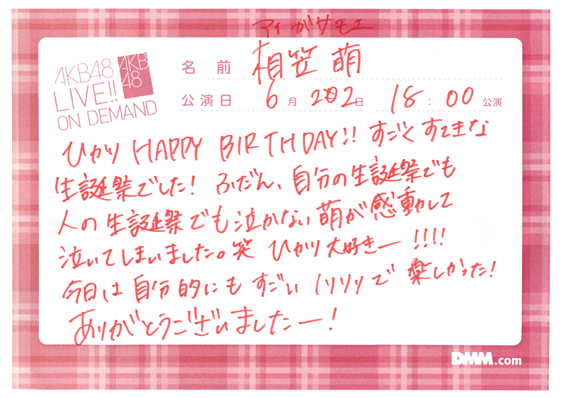 AKB48
LIVE!!
ON DEMAND
AKB
48
アイ がサ モエ
名 前 相笠 萌
公演日 6月 202日 18:00公演
ひかり HAPPY BIRTHDAY!! すごくすてきな
生誕祭でした! ふだん、自分の生誕祭でも
人の生誕祭でも泣かない萌が感動して
泣いてしまいました。笑 ひかり大好きー!!!!
今日は自分的にもすごいノリノリで 楽しかった!
ありがとうございましたー!
DMM.com